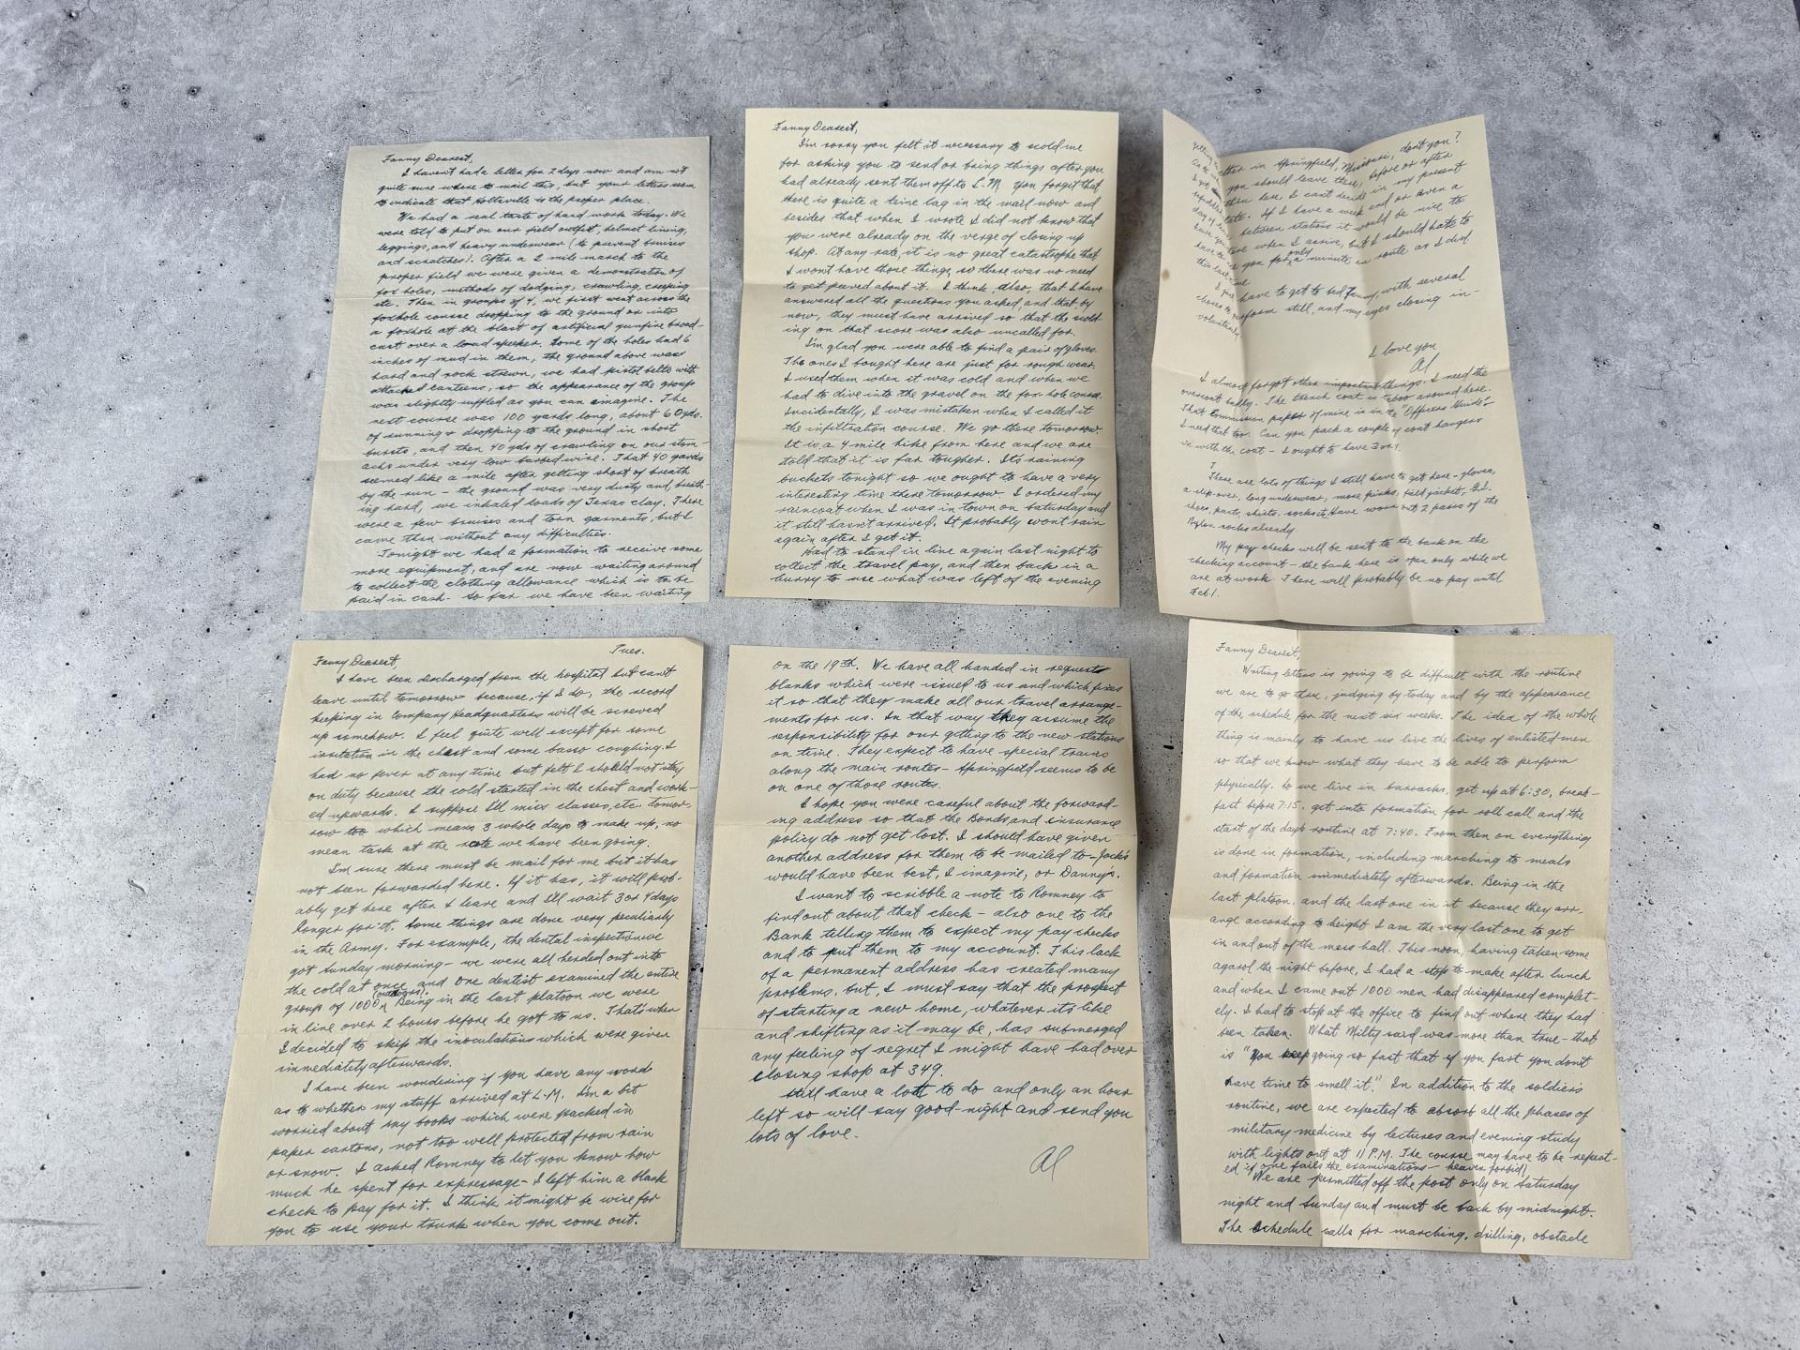 Fanny Dearest,
I haven't had a letter for 2 days now and am not
quite sure where to mail this, but your letters seem
to indicate that Holtsville is the proper place.
We had a real taste of hard work today. We
were told to put on our field outfit, helmet lining,
leggings, and heavy underwear (to prevent bruises
and scratches). After a 2 mile march to the
proper field we were given a demonstration of
fox holes, methods of dodging, crawling, creeping
etc. Then in groups of 4, we first went across the
foxhole course dropping to the ground or into
a foxhole at the blast of artificial gunfire broad-
cast over a loud speaker. Some of the holes had 6
inches of mud in them, the ground above was
hard and rock strewn, we had pistol belts with
attached canteens, so the appearance of the group
was slightly ruffled as you can imagine. The
next course was 100 yards long, about 60 yds.
of running & dropping to the ground in short
bursts, and then 40 yds of crawling on our stom-
achs under very low barbed wire. That 40 yards
seemed like a mile after getting short of breath
by the run - the ground was very dusty and, breath-
ing hard, we inhaled loads of Texas clay. There
were a few bruises and torn garments, but I
came thru without any difficulties.
Tonight we had a formation to receive some
more equipment, and are now waiting around
to collect the clothing allowance which is to be
paid in cash - so far we have been waiting
Fanny Dearest,
I'm sorry you felt it necessary to scold me
for asking you to send or bring things after you
had already sent them off to L-M. You forget that
there is quite a time lag in the mail now and
besides that when I wrote I did not know that
you were already on the verge of closing up
shop. At any rate, it is no great catastrophe that
I won't have those things, so there was no need
to get peeved about it. I think, also, that I have
answered all the questions you asked, and that by
now, they must have arrived so that the scold-
ing on that score was also uncalled for.
I'm glad you were able to find a pair of gloves.
The ones I bought here are just for rough wear.
I used them when it was cold and when we
had to dive into the gravel on the fox hole course.
Incidentally, I was mistaken when I called it
the infiltration course. We go there tomorrow.
It is a 4 mile hike from here and we are
told that it is far tougher. It's raining
buckets tonight so we ought to have a very
interesting time there tomorrow. I ordered my
raincoat when I was in town on Saturday and
it still hasn't arrived. It probably won't rain
again after I get it.
Had to stand in line again last night to
collect the travel pay, and then back in a
hurry to use what was left of the evening
letter in Springfield, Missouri, don't you?
you should leave there, before or after
then here, I can't decide in my present
state. If I have a week end or even a
between stations it would be nice to
when I arrive, but I should hate to
you for only a minute, en route, as I did.
have to get to bed Fanny, with several
still, and my eyes closing in-
voluntarily
I love you
Al
I almost forgot other important things. I need the
overcoat badly. The trench coat is taboo around here.
That Commission paper of mine is in the "Officers Guide"-
I need that too. Can you pack a couple of coat hangers
in with the coat - I ought to have 3 or 4.
There are lots of things I still have to get here - gloves,
a slip-over, long underwear, more pinks, field jacket, G.I.
shoes, pants, shirts, socks etc. Have worn out 2 pairs of the
Nylon socks already.
My pay checks will be sent to the bank on the
checking account - the bank here is open only while we
are at work. There will probably be no pay until
Feb 1.
Tues.
Fanny Dearest,
I have been discharged from the hospital but can't
leave until tomorrow because, if I do, the record
keeping in Company Headquarters will be screwed
up somehow. I feel quite well except for some
irritation in the chest and some basso coughing. I
had no fever at any time but felt I should not stay
on duty because the cold started in the chest and work-
ed upwards. I suppose I'll miss classes, etc. tomor-
row too which means 3 whole days to make up, no
mean task at the rate we have been going.
I'm sure there must be mail for me but it has
not been forwarded here. If it has, it will prob-
ably get here after I leave and I'll wait 3 or 4 days
longer for it. Some things are done very peculiarly
in the Army. For example, the dental inspection we
got Sunday morning - we were all herded out into
the cold at once and one dentist examined the entire
group of 1000. Being in the last platoon we were
in line over 2 hours before he got to us. That's when
I decided to skip the inoculations which were given
immediately afterwards.
I have been wondering if you have any word
as to whether my stuff arrived at L-M. I'm a bit
worried about my books which were packed in
paper cartons, not too well protected from rain
or snow. I asked Romney to let you know how
much he spent for expressage - I left him a blank
check to pay for it. I think it might be wise for
you to use your trunk when you come out.
on the 19th. We have all handed in request
blanks which were issued to us and which fixes
it so that they make all our travel arrange-
ments for us. In that way they assume the
responsibility for our getting to the new stations
on time. They expect to have special trains
along the main routes - Springfield seems to be
on one of those routes.
I hope you were careful about the forward-
ing address so that the Bonds and insurance
policy do not get lost. I should have given
another address for them to be mailed to - Jack's
would have been best, I imagine, or Danny's.
I want to scribble a note to Romney to
find out about that check - also one to the
Bank telling them to expect my pay checks
and to put them to my account. This lack
of a permanent address has created many
problems, but, I must say that the prospect
of starting a new home, whatever its like
and shifting as it may be, has submerged
any feeling of regret I might have had over
closing shop at 349.
Still have a lot to do and only an hour
left so will say good-night and send you
lots of love.
Al
Fanny Dearest,
Writing letters is going to be difficult with the routine
we are to go thru, judging by today and by the appearance
of the schedule for the next six weeks. The idea of the whole
thing is mainly to have us live the lives of enlisted men
so that we know what they have to be able to perform
physically. So we live in barracks, get up at 6:30, break-
fast before 7:15, get into formation for roll call and the
start of the day's routine at 7:40. From then on everything
is done in formation, including marching to meals
and formation immediately afterwards. Being in the
last platoon, and the last one in it because they arr-
ange according to height I am the very last one to get
in and out of the mess hall. This noon, having taken some
agarol the night before, I had a stop to make after lunch
and when I came out 1000 men had disappeared complet-
ely. I had to stop at the office to find out where they had
been taken. What Milty said was more than true - that
is "You keep going so fast that if you fart you don't
have time to smell it." In addition to the soldiers
routine, we are expected to absorb all the phases of
military medicine by lectures and evening study
with lights out at 11 P.M. The course may have to be repeat-
ed if one fails the examinations - heaven forbid!
We are permitted off the post only on Saturday
night and Sunday and must be back by midnight.
The schedule calls for marching, drilling, obstacle